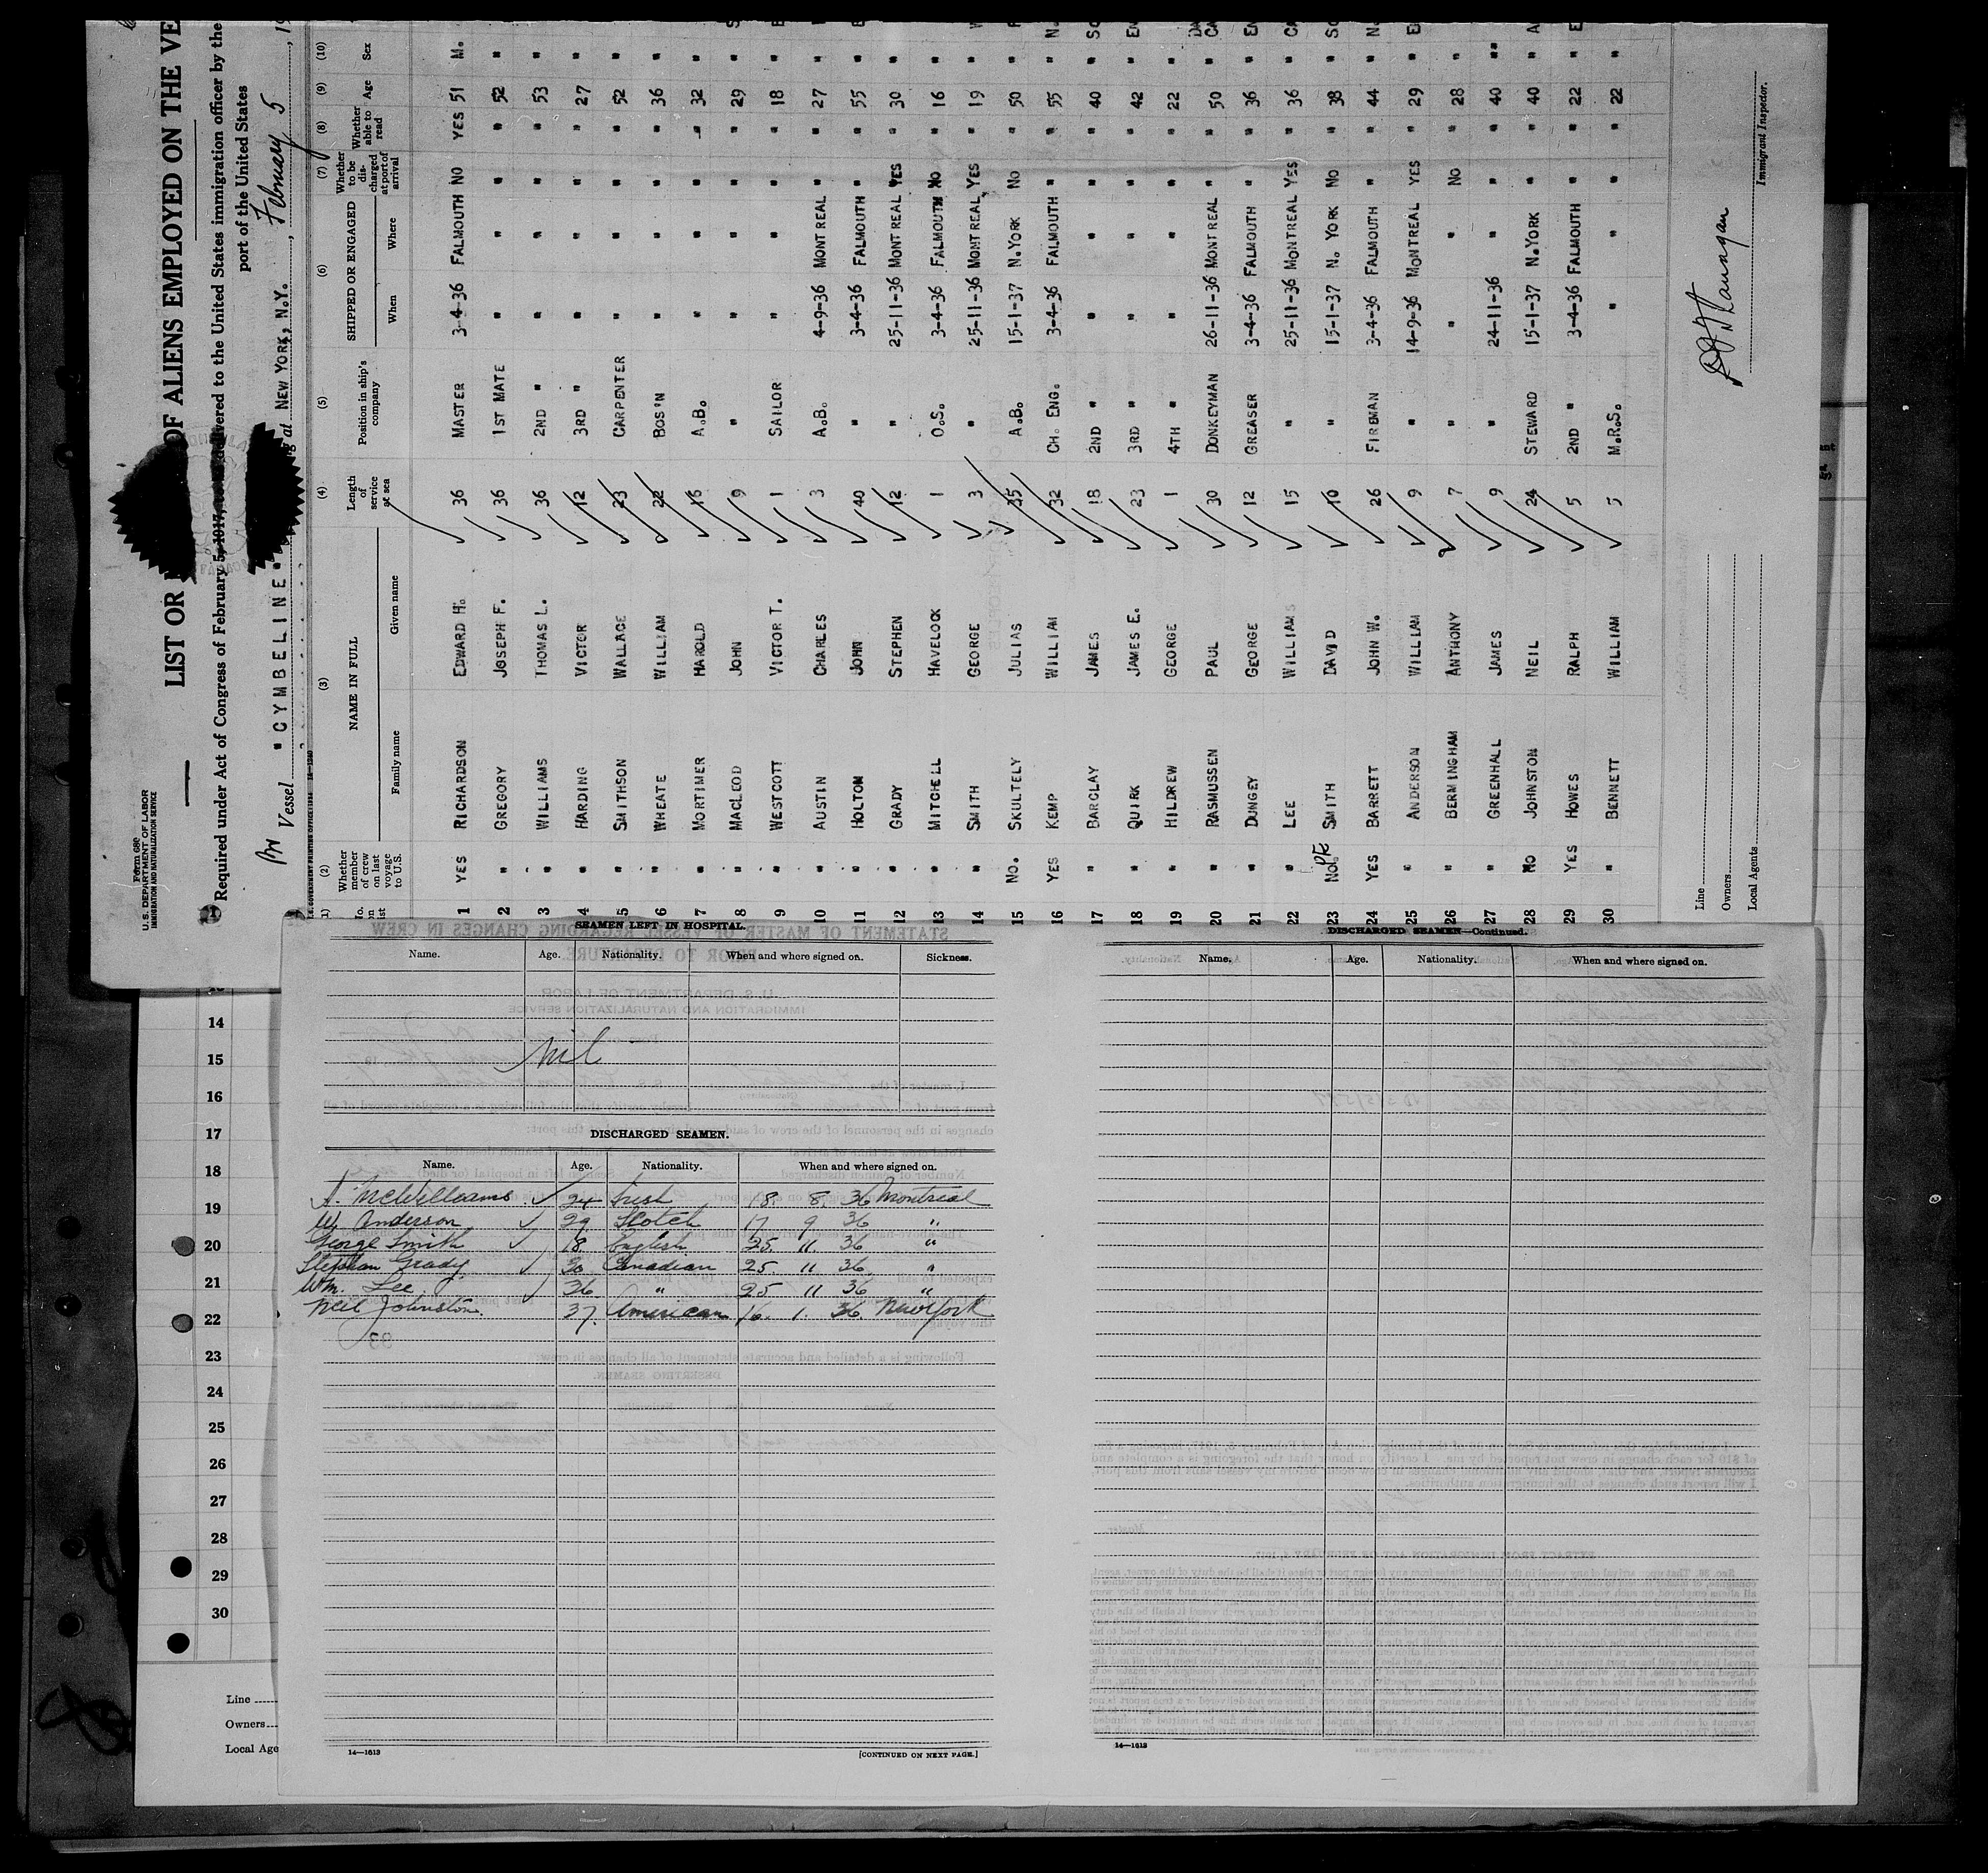 Form 680
U.S. DEPARTMENT OF LABOR
IMMIGRATION AND NATURALIZATION SERVICE
LIST OR OF ALIENS EMPLOYED ON THE VE
Required under Act of Congress of February 5, 1917, delivered to the United States immigration officer by the
port of the United States
Vessel "CYMBELINE" at NEW YORK, N.Y., February 5, 19
(1) (2) (3) (4) (5) (6) (7) (8) (9) (10)
No. on list Whether member of crew on last voyage to U.S. NAME IN FULL Length of service at sea Position in ship's company SHIPPED OR ENGAGED Whether to be discharged at port of arrival Whether able to read Age Sex
Family name Given name When Where
1 YES RICHARDSON EDWARD H. 36 MASTER 3-4-36 FALMOUTH NO YES 51 M.
2 " GREGORY JOSEPH F. 36 1ST MATE " " " " 52 "
3 " WILLIAMS THOMAS L. 36 2ND " " " " " 53 "
4 " HARDING VICTOR 12 3RD " " " " " 27 "
5 " SMITHSON WALLACE 23 CARPENTER " " " " 52 "
6 " WHEATE WILLIAM 22 BOSIN " " " " 36 "
7 " MORTIMER HAROLD 16 A.B. " " " " 32 "
8 " MACLEOD JOHN 9 " " " " " 29 "
9 " WESTCOTT VICTOR T. 1 SAILOR " " " " 18 "
10 " AUSTIN CHARLES 3 A.B. 4-9-36 MONTREAL " " 27 "
11 " HOLTON JOHN 40 " 3-4-36 FALMOUTH " " 55 "
12 " GRADY STEPHEN 12 " 25-11-36 MONTREAL YES " 30 "
13 " MITCHELL HAVELOCK 1 O.S. 3-4-36 FALMOUTH NO " 16 "
14 " SMITH GEORGE 3 " 25-11-36 MONTREAL YES " 19 "
15 NO. SKULTELY JULIAS 35 A.B. 15-1-37 N.YORK NO " 50 "
16 YES KEMP WILLIAM 32 CH. ENG. 3-4-36 FALMOUTH " " 55 "
17 " BARCLAY JAMES 18 2ND " " " " " 40 "
18 " QUIRK JAMES E. 23 3RD " " " " " 42 "
19 " HILDREW GEORGE 1 4TH " " " " " 22 "
20 " RASMUSSEN PAUL 30 DONKEYMAN 26-11-36 MONTREAL " " 50 "
21 " DUNGEY GEORGE 12 GREASER 3-4-36 FALMOUTH " " 36 "
22 " LEE WILLIAMS 15 " 25-11-36 MONTREAL YES " 36 "
23 NO. SMITH DAVID 10 " 15-1-37 N. YORK NO " 38 "
24 YES BARRETT JOHN W. 26 FIREMAN 3-4-36 FALMOUTH " " 44 "
25 " ANDERSON WILLIAM 9 " 14-9-36 MONTREAL YES " 29 "
26 " BERMINGHAM ANTHONY 7 " " " NO " 28 "
27 " GREENHALL JAMES 9 " 24-11-36 " " " 40 "
28 NO JOHNSTON NEIL 24 STEWARD 15-1-37 N.YORK " " 40 "
29 YES HOWES RALPH 5 2ND " 3-4-36 FALMOUTH " " 22 "
30 " BENNETT WILLIAM 5 M.R.S. " " " " 22 "
Line
Owners
Local Agents
Immigrant Inspector.
SEAMEN LEFT IN HOSPITAL.
Name. Age. Nationality. When and where signed on. Sickness.
Nil
DISCHARGED SEAMEN.
Name. Age. Nationality. When and where signed on.
A. McWilliams 24 Irish 18. 8. 36 Montreal
W. Anderson 29 Scotch 17 9 36 "
George Smith 18 English 25. 11. 36 "
Stephan Grady 30 Canadian 25. 11 36 "
Wm. Lee 36 " 25 11 36 "
Neil Johnston. 37. American 16. 1. 36. New York
14—1613
[CONTINUED ON NEXT PAGE.]
DISCHARGED SEAMEN—Continued.
Name. Age. Nationality. When and where signed on.
14—1613
14
15
16
17
18
19
20
21
22
23
24
25
26
27
28
29
30
Line
Owners
Local Age